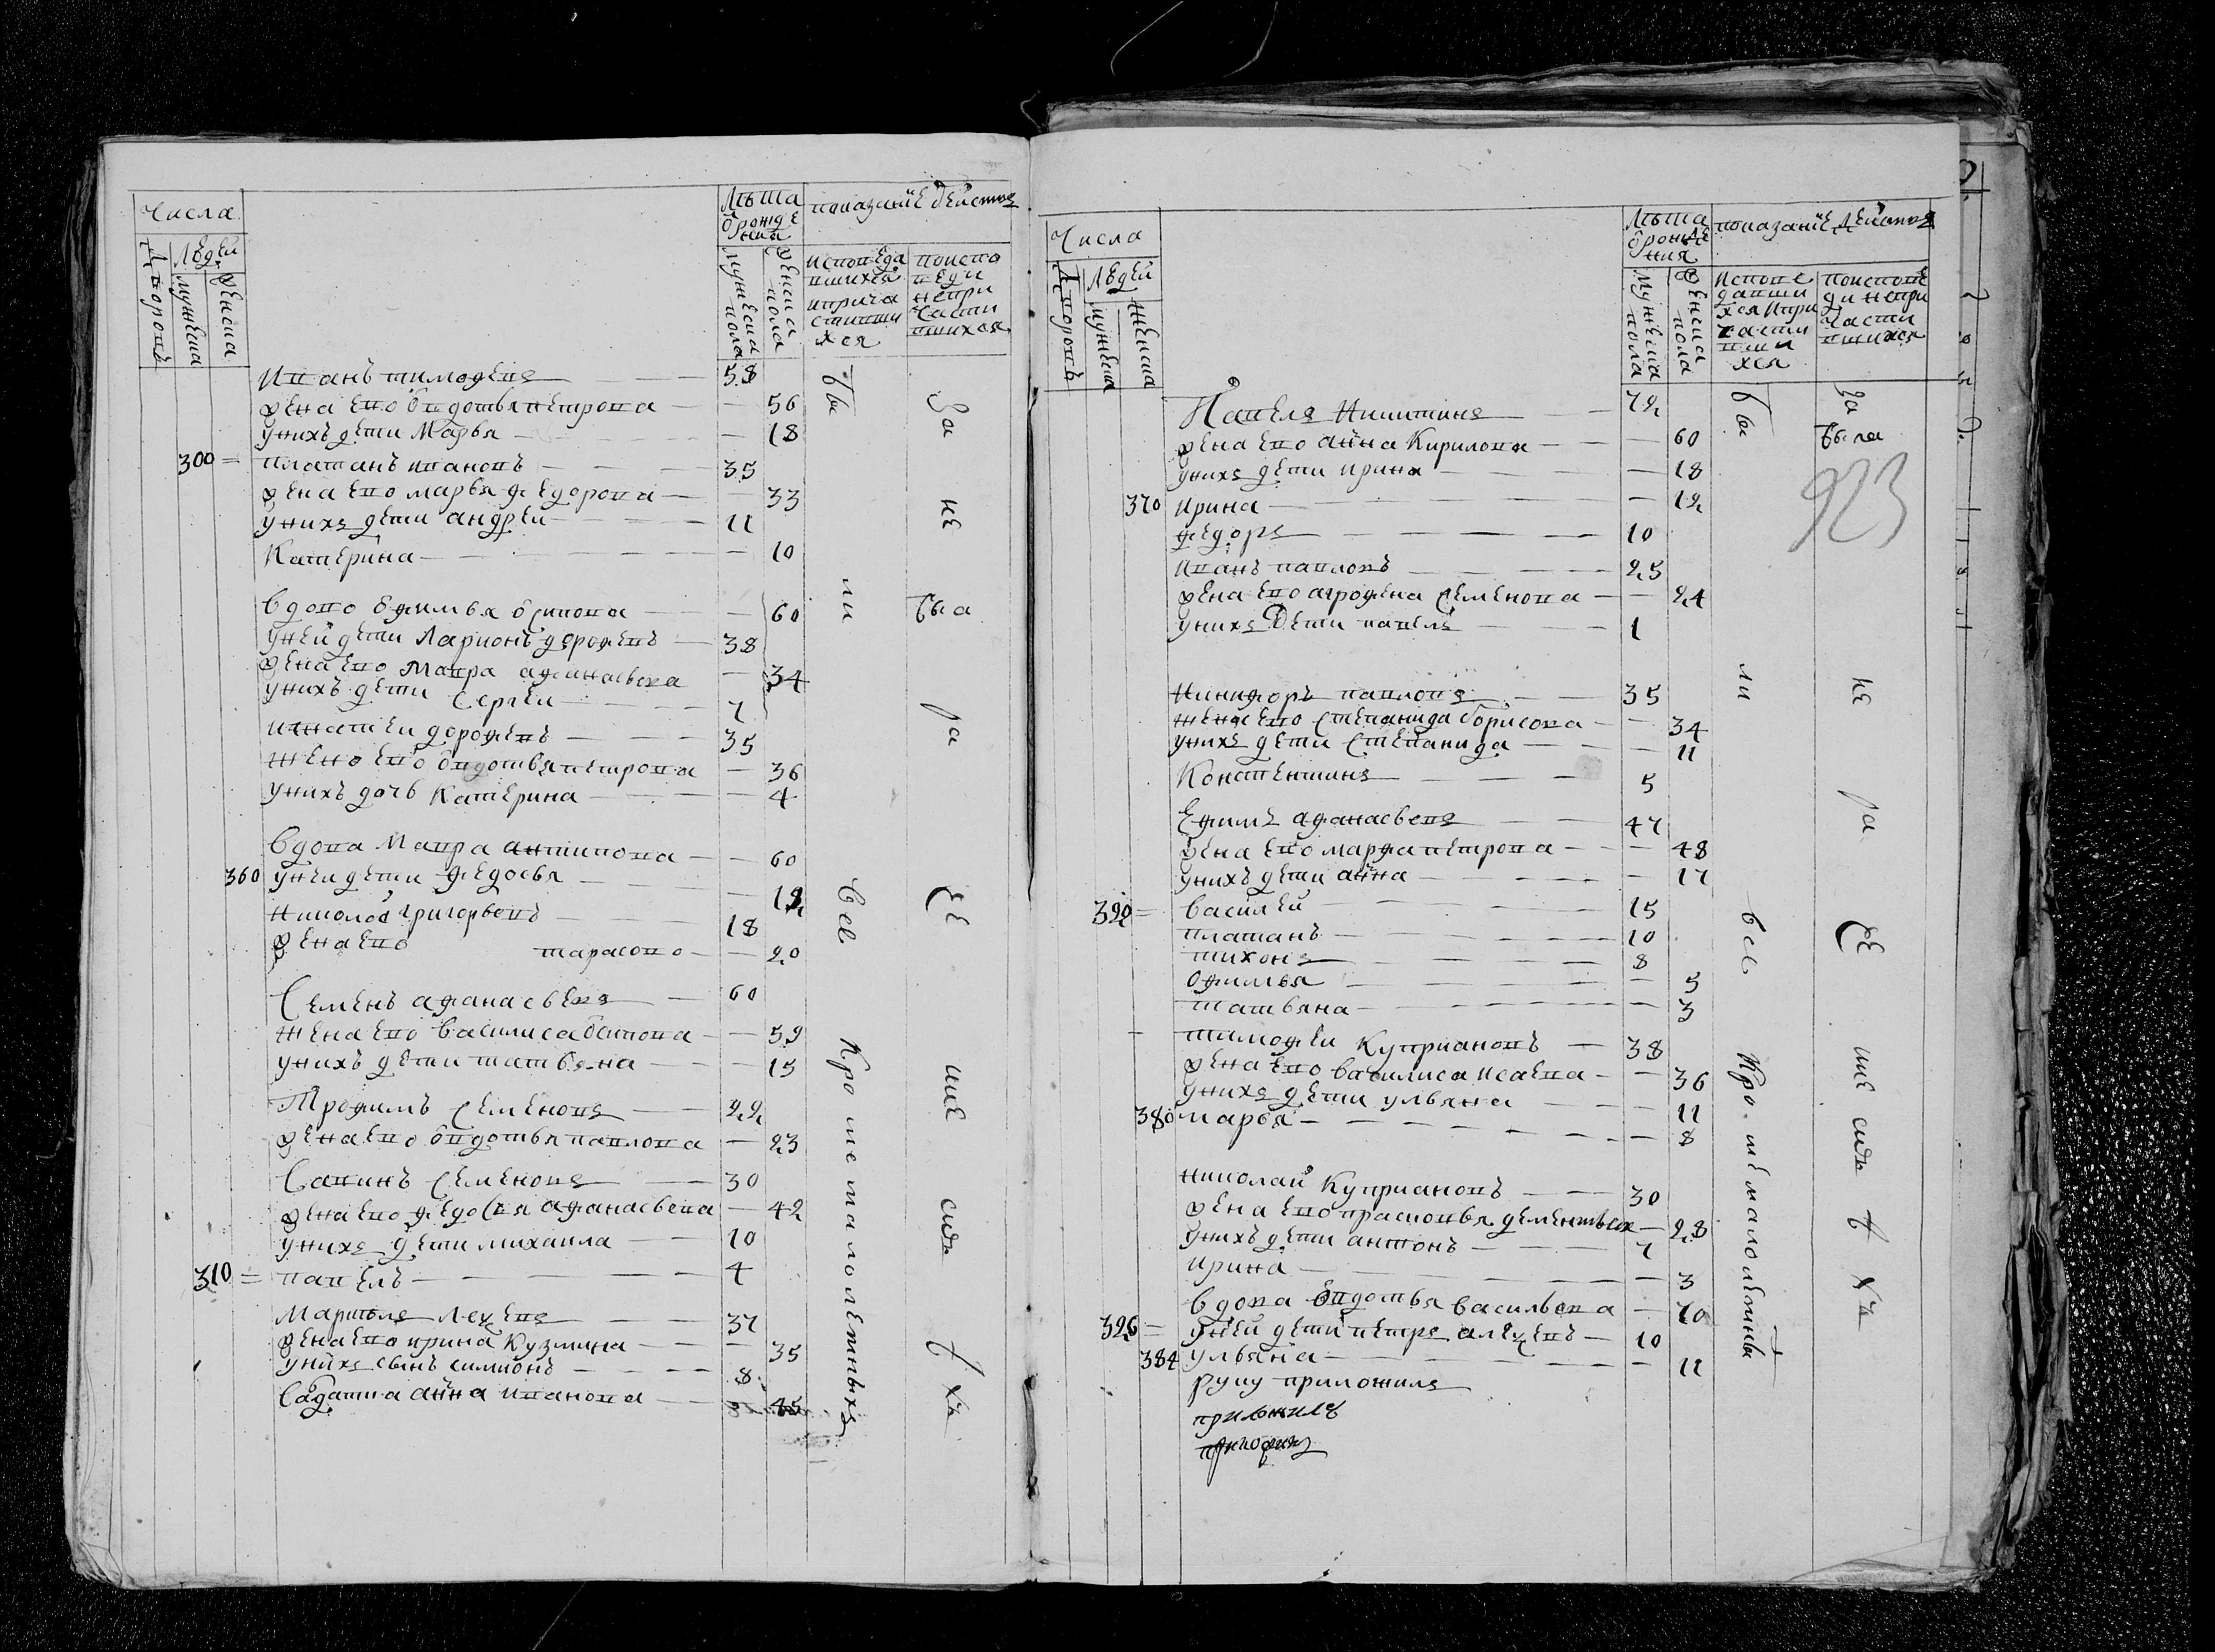 Числа
Дворовъ
Людей
мужеска
женска
Лѣта
ѿ рожде
ния
мужеска пола
женска пола
показание действа
исповеда
вшихся
и прича
стивши
хся
по испо
веди
непри
части
вшихся
Иванъ тимофѣевъ 58
жена ево овдотья петрова 56
у нихъ дети Марья 18
300 платанъ ивановъ 35
жена ево марья федорова 33
у нихъ дети андрей 11
Катерина 10
вдово офимья осипова 60
у ней дети Ларионъ дорофевъ 38
жена ево Мавра афанасьева 34
у нихъ дети Сергей 7
игнатей дорофевъ 35
жено ево овдотья петрова 36
у нихъ дочь Катерина 4
вдова Мавра антипова 60
360 у ней дети федосья 12
николай григорьевъ 18
жена ево тарасово 20
Семенъ афанасьевъ 60
жена ево василиса осипова 59
у нихъ дети татьяна 15
Трофимъ Семеновъ 22
жена ево овдотья павлова 23
Савинъ Семеновъ 30
жена ево федосья афанасьева 42
у нихъ дети михаила 10
310 павелъ 4
37
жена ево ирина Кузмина 35
у нихъ сынъ симионъ 8
Салдатка анна иванова 45
бы
ли
всѣ
кроме малолетныхъ
за
не
бы
ра
че
ние
сихъ
Числа
Дворовъ
Людей
мужеска
женска
Лѣта
ѿ рожде
ния
мужеска пола
женска пола
показание действа
испове
давши
хся и при
части
вши
хся
по испове
ди непри
части
вшихся
Павелъ Никитинъ 72
жена ево анна Кирилова 60
у нихъ дети ирина 18
370 ирина 12
федоръ 10
Иванъ павловъ 25
жена ево агрофена Семенова 24
у нихъ дети павелъ 1
Никифоръ павловъ 35
жена ево степанида борисова 34
у нихъ дети степанида 11
Констентинъ 5
Ефимъ афанасьевъ 47
жена ево марфа петрова 48
у нихъ дети анна 17
320 василей 15
платанъ 10
тихонъ 8
офимья 5
татьяна 3
тимофей Куприановъ 38
жена ево василиса исаева 36
у нихъ дети ульяна 11
380 марья 8
николай Куприановъ 30
жена ево прасковья дементьева 28
у нихъ дети антонъ 7
ирина 3
вдова овдотья васильева 70
326 у ней дети петръ алексевъ 10
384 ульяна 11
руку приложилъ
приложилъ
бы
ли
всѣ
кроме малолетныхъ
за
была
не
ра
че
ние
сихъ
923